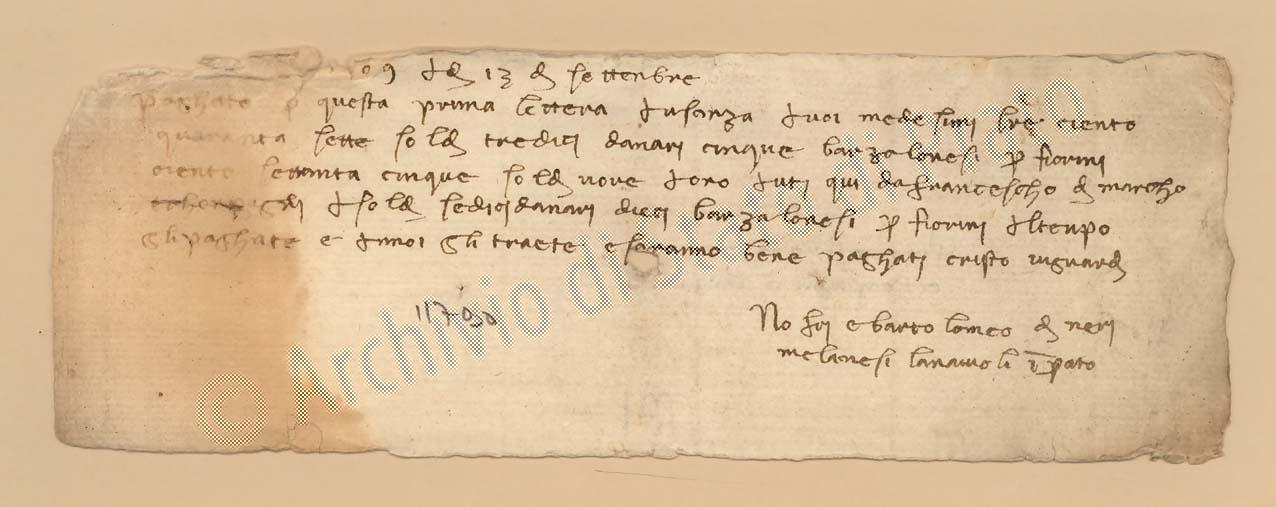 09 a dì 13 di settenbre
Paghate p questa prima lettera a usanza a voi medesimi lbre ciento
quaranta sette sold tredici danari cinque barzalonesi p fiorini
ciento settanta cinque sold nove a oro auti qui da franciescho d marcho
a sold sedici danari dieci barzalonesi p fiorini al tenpo
gli paghate e a noi gli traete e saranno bene paghati cristo vi guardi
No fri e bartolomeo d neri
melanesi lanaiuoli i prato
117030
© Archivio di stato